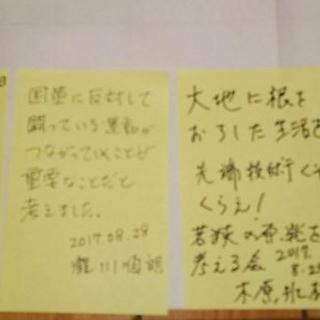 国策に反対して
闘っている運動が
つながっていくことが
重要なことだと
考えました。
2017.08.28
瀧川順朗
大地に根を
おろした生活を
先端技術くそ
くらえ!
若狭の原発を
考える会 2017
8.2
木原